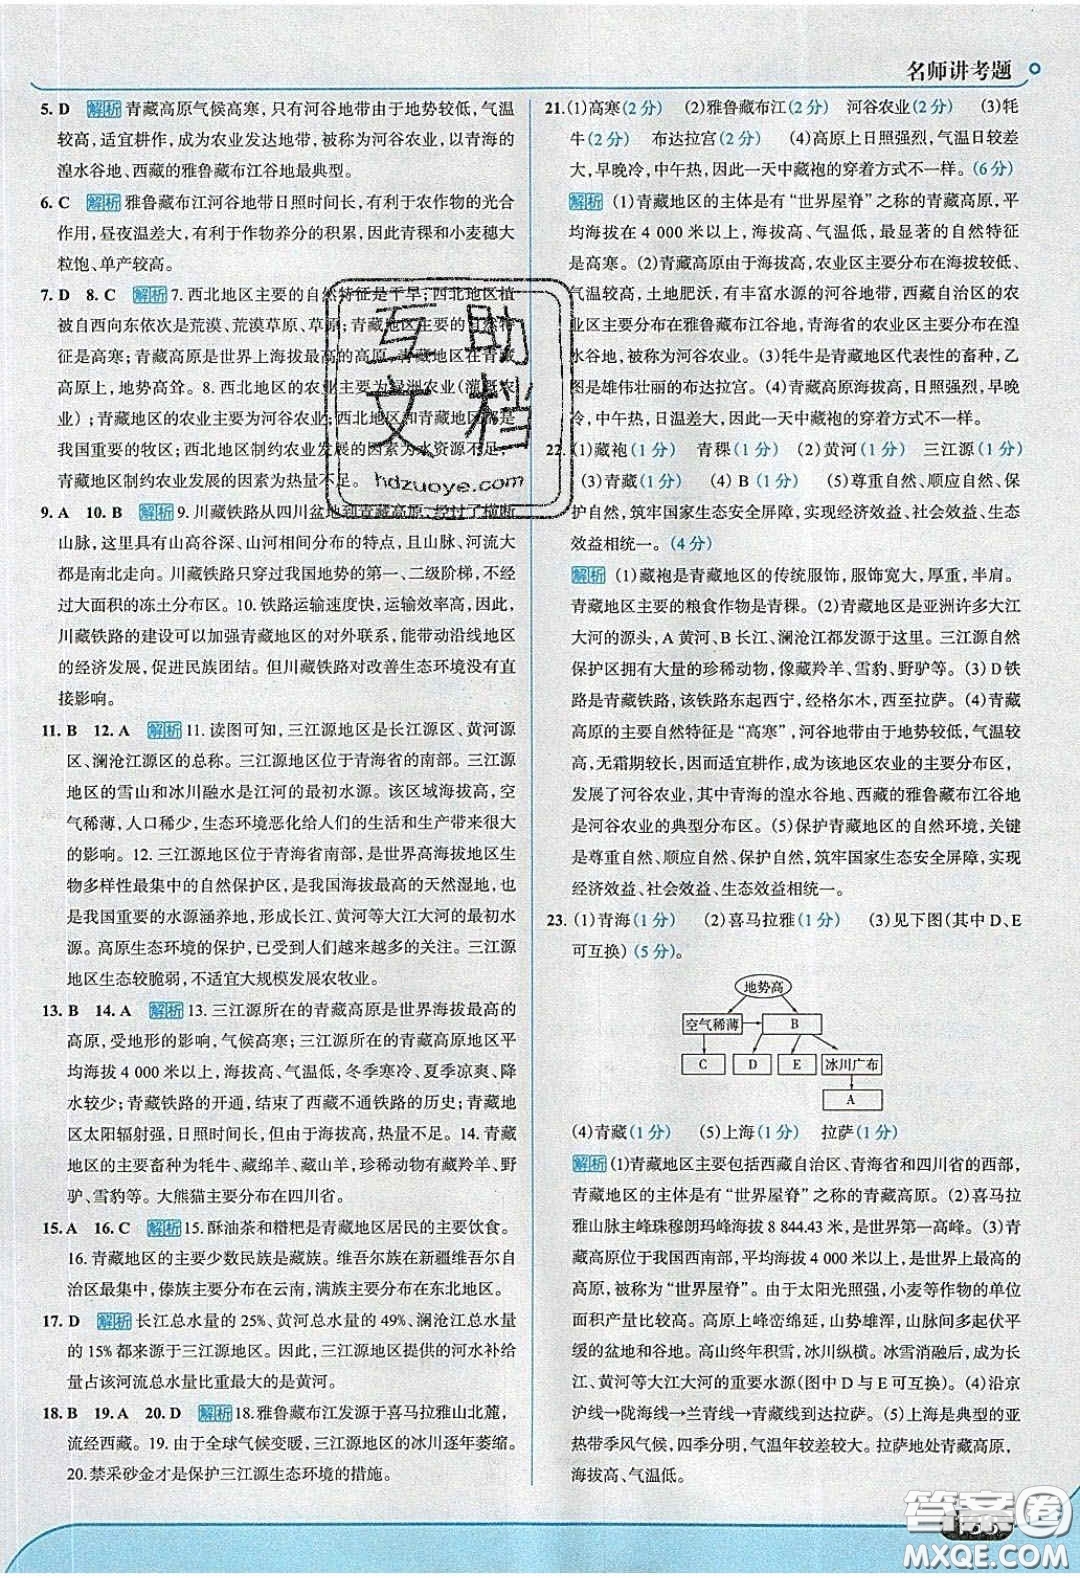 名师讲考题
5. D 解析 青藏高原气候高寒,只有河谷地带由于地势较低,气温
较高,适宜耕作,成为农业发达地带,被称为河谷农业,以青海的
湟水谷地、西藏的雅鲁藏布江谷地最典型。
6. C 解析 雅鲁藏布江河谷地带日照时间长,有利于农作物的光合
作用,昼夜温差大,有利于作物养分的积累,因此青稞和小麦穗大
粒饱、单产较高。
7. D 8. C 解析 7. 西北地区主要的自然特征是干旱;西北地区植
被自西向东依次是荒漠、荒漠草原、草原;青藏地区主要的自然特
征是高寒;青藏高原是世界上海拔最高的高原,青藏地区在青藏
高原上,地势高耸。8. 西北地区的农业主要为绿洲农业(灌溉农
业);青藏地区的农业主要为河谷农业;西北地区和青藏地区都是
我国重要的牧区;西北地区制约农业发展的因素为水资源不足,
青藏地区制约农业发展的因素为热量不足。
9. A 10. B 解析 9. 川藏铁路从四川盆地到青藏高原,经过了横断
山脉,这里具有山高谷深、山河相间分布的特点,且山脉、河流大
都是南北走向。川藏铁路只穿过我国地势的第一、二级阶梯,不经
过大面积的冻土分布区。10. 铁路运输速度快,运输效率高,因此,
川藏铁路的建设可以加强青藏地区的对外联系,能带动沿线地区
的经济发展,促进民族团结。但川藏铁路对改善生态环境没有直
接影响。
11. B 12. A 解析 11. 读图可知,三江源地区是长江源区、黄河源
区、澜沧江源区的总称。三江源地区位于青海省的南部。三江源
地区的雪山和冰川融水是江河的最初水源。该区域海拔高,空
气稀薄,人口稀少,生态环境恶化给人们的生活和生产带来很大
的影响。12. 三江源地区位于青海省南部,是世界高海拔地区生
物多样性最集中的自然保护区,是我国海拔最高的天然湿地,也
是我国重要的水源涵养地,形成长江、黄河等大江大河的最初水
源。高原生态环境的保护,已受到人们越来越多的关注。三江源
地区生态较脆弱,不适宜大规模发展农牧业。
13. B 14. A 解析 13. 三江源所在的青藏高原是世界海拔最高的
高原,受地形的影响,气候高寒;三江源所在的青藏高原平均海
拔 4 000 米以上,海拔高、气温低,冬季寒冷、夏季凉爽、降
水较少;青藏铁路的开通,结束了西藏不通铁路的历史;青藏地
区太阳辐射强,日照时间长,但由于海拔高,热量不足。14. 青藏
地区的主要畜种为牦牛、藏绵羊、藏山羊,珍稀动物为藏羚羊、野
驴、雪豹等。大熊猫主要分布在四川省。
15. A 16. C 解析 15. 酥油茶和糌粑是青藏地区居民的主要饮食。
16. 青藏地区的主要少数民族是藏族。维吾尔族在新疆维吾尔自
治区最集中,傣族主要分布在云南,满族主要分布在东北地区。
17. D 解析 长江总水量的 25%、黄河总水量的 49%、澜沧江总水量
的 15%都来自于三江源地区。因此,三江源地区提供的河水补给
量占该河流总水量比重最大的是黄河。
18. B 19. A 20. D 解析 18. 雅鲁藏布江发源于喜马拉雅山北麓,
流经西藏。19. 由于全球气候变暖,三江源地区的冰川逐年萎缩。
20. 禁采砂金才是保护三江源生态环境的措施。
21. (1)高寒(2 分) (2)雅鲁藏布江(2 分) 河谷农业(2 分) (3)牦
牛(2 分) 布达拉宫(2 分) (4)高原上日照强烈,气温日较差
大,早晚冷,中午热,因此一天中藏袍的穿着方式不一样。(6 分)
解析 (1)青藏地区的主体是有“世界屋脊”之称的青藏高原,平
均海拔在 4 000 米以上,海拔高、气温低,最显著的自然特征
是高寒。(2)青藏高原由于海拔高,农业区主要分布在海拔较低、
气温较高,土地肥沃,有丰富水源的河谷地带,西藏自治区的农
业区主要分布在雅鲁藏布江谷地,青海省的农业区主要分布在湟
水谷地,被称为河谷农业。(3)牦牛是青藏地区代表性的畜种,乙
图是雄伟壮丽的布达拉宫。(4)青藏高原海拔高,日照强烈,早晚
冷,中午热,日温差大,因此一天中藏袍的穿着方式不一样。
22. (1)藏袍(1 分) 青稞(1 分) (2)黄河(1 分) 三江源(1 分)
(3)青藏(1 分) (4) B(1 分) (5)尊重自然、顺应自然、保
护自然,筑牢国家生态安全屏障,实现经济效益、社会效益、生态
效益相统一。(4 分)
解析 (1)藏袍是青藏地区的传统服饰,服饰宽大,厚重,半肩。
青藏地区主要的粮食作物是青稞。(2)青藏地区是亚洲许多大江
大河的源头,A 黄河、B 长江、澜沧江都发源于这里。三江源自然
保护区拥有大量的珍稀动物,像藏羚羊、雪豹、野驴等。(3) D 铁
路是青藏铁路,该铁路东起西宁,经格尔木,西至拉萨。(4)青藏
高原的主要自然特征是“高寒”,河谷地带由于地势较低,气温较
高、无霜期较长且而适宜耕作,成为该地区的主要农业分布区,
发展了河谷农业,其中青海的湟水谷地、西藏的雅鲁藏布江谷地
是河谷农业的典型分布区。(5)保护青藏地区的自然环境,关键
是尊重自然、顺应自然、保护自然,筑牢国家生态安全屏障,实现
经济效益、社会效益、生态效益相统一。
23. (1)青海(1 分) (2)喜马拉雅(1 分) (3)见下图(其中 D、E
可互换)(5 分)。
地势高
空气稀薄 B
C D E 冰川广布
A
(4)青藏(1 分) (5)上海(1 分) 拉萨(1 分)
解析 (1)青藏地区主要包括西藏自治区、青海省和四川省的西部,
青藏地区的主体是有“世界屋脊”之称的青藏高原。(2)喜马拉
雅山脉主峰珠穆朗玛峰海拔 8 844.43 米,为世界第一高峰。(3)青
藏高原位于我国西南部,平均海拔 4 000 米以上,是世界最高的
高原,被称为“世界屋脊”。由于太阳光照强,小麦等作物的单位
面积产量比较高。高原上峰峦绵延,山势雄浑,山脉间多起伏平
缓的盆地和谷地。高山终年积雪,冰川纵横。冰雪消融后,成为
许多大江大河的重要水源(图中 D 与 E 可互换)。(4)沿京
沪线→陇海线→兰青线→青藏线可到达拉萨。(5)上海是典型的亚
热带季风气候,四季分明,气温年较差较大。拉萨地处青藏高原,
海拔高、气温低。
互助
文档
hdzuoye.com
答案圈
MXQE.COM